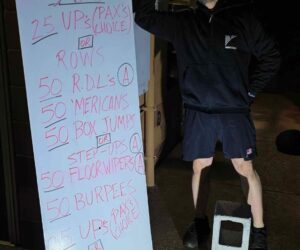 25 UP's (PAX's
CHOICE)
OR
ROWS
50 R.D.L's A
50 'MERICANS
50 BOX JUMPS
OR
STEP-UPS A
50 FLOORWIPERS A
50 BURPEES
25 UP's PAX's
CHOICE
OR